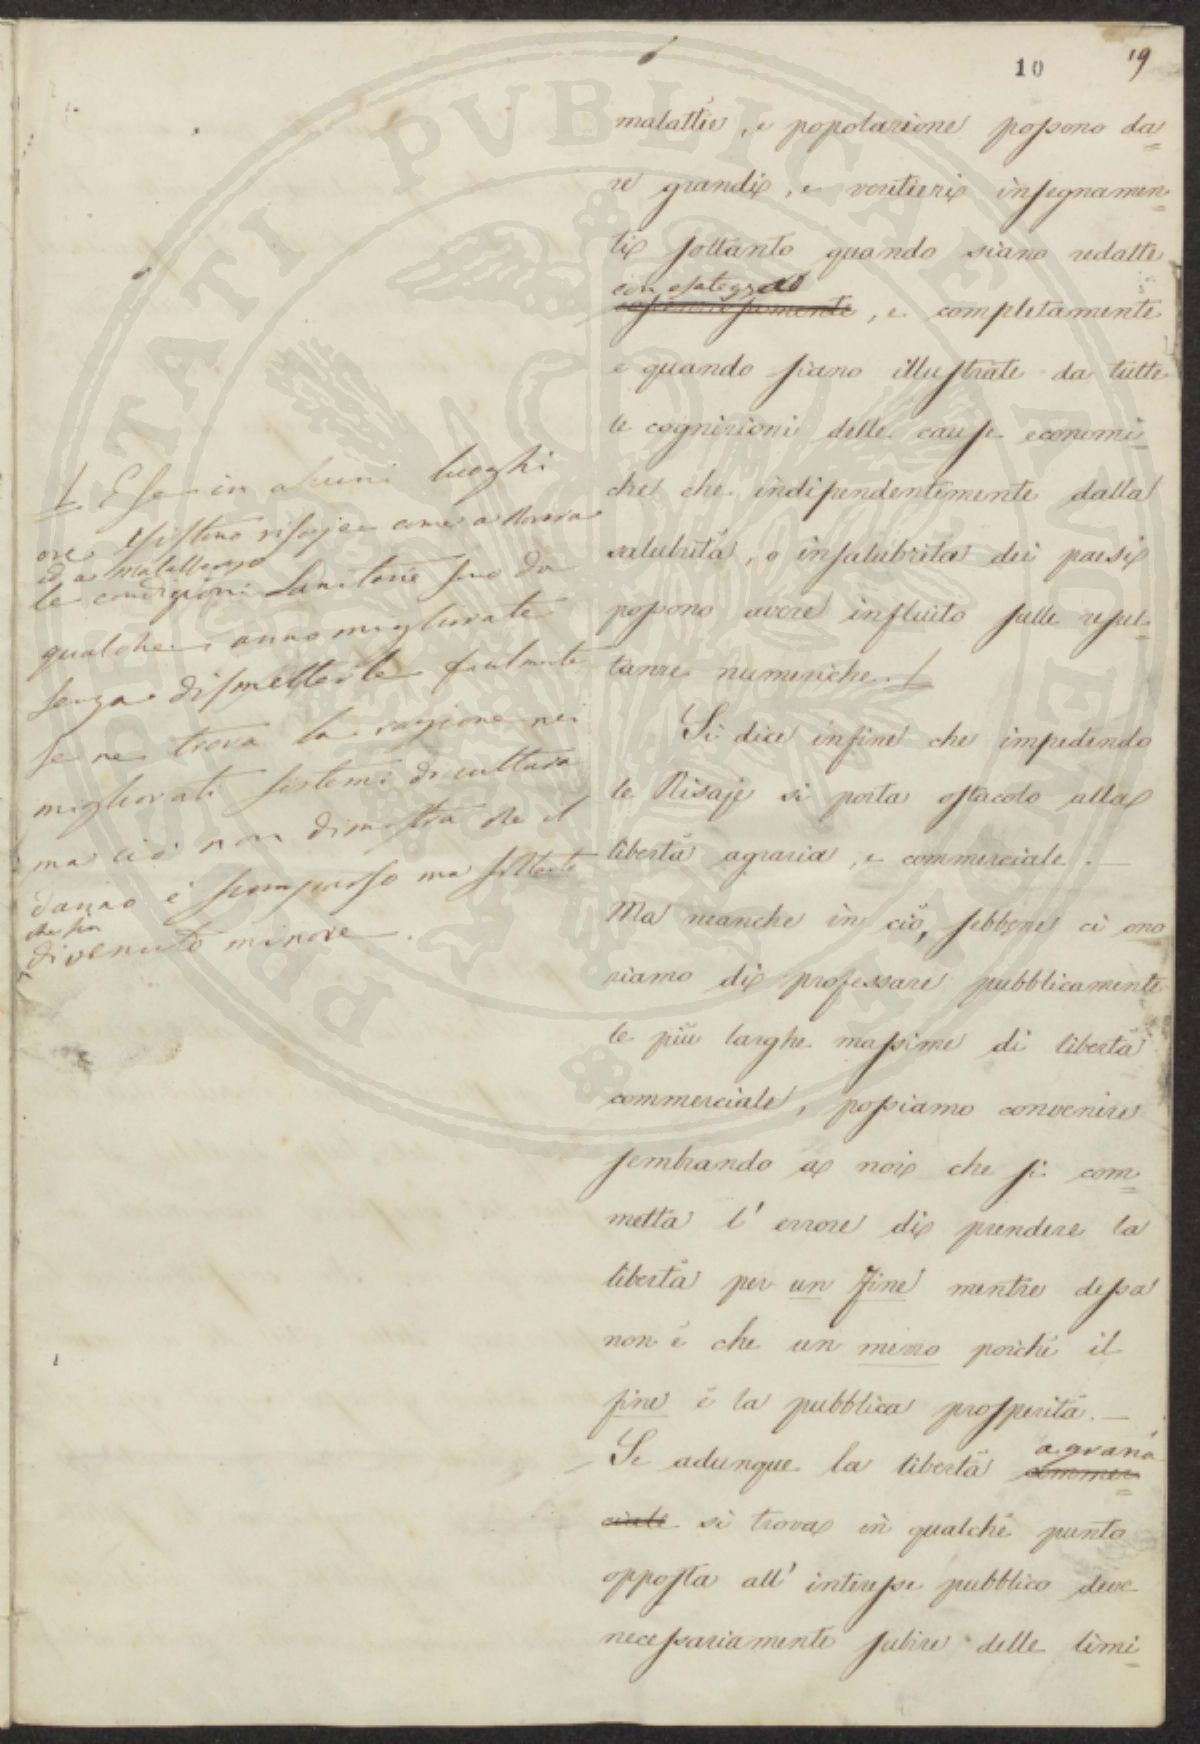 10 19
malattie, e popolazione possono da=
re grandi, e veritieri insegnamen=
ti soltanto quando siano redatte
con esatezza
, e completamente
e quando siano illustrate da tutte
le cognizioni delle cause economi=
che che indipendentemente dalla
salubrità, o insalubrità dei paesi
possono avere influito sulle resul=
tanze numeriche. /
Si dice infine che impedendo
le Risaje si porta ostacolo alla
libertà agraria, e commerciale. —
Ma neanche in ciò, sebbene ci ono
riamo di professare pubblicamente
le più larghe massime di libertà
commerciale, possiamo convenire
sembrando a noi che si com=
metta l'errore di prendere la
libertà per un fine mentre dessa
non è che un mezzo poichè il
fine è la pubblica prosperità. —
Se adunque la libertà agraria
commer=
ciale si trova in qualche punto
opposta all'interesse pubblico deve
necessariamente subire delle limi=
/ E se in alcuni luoghi
ove esistono risaje come a
ed a
le condizioni Sanitarie sono da
qualche anno migliorate
senza dismetterle facilmente
se ne trova la ragione nei
migliorati sistemi di cultura
ma ciò non dimostra che il
danno è scomparso ma soltanto
che sia
divenuto minore.
PUBLICAE UTILITATI